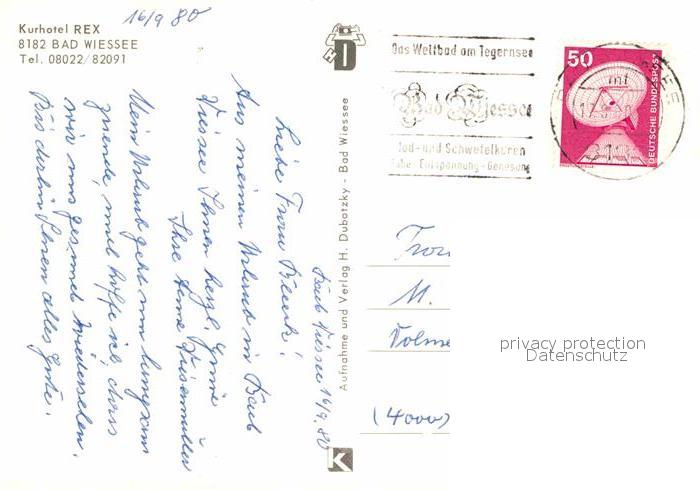 16/9 80
Kurhotel REX
8182 BAD WIESSEE
Tel. 08022/82091
Bad Wiessee 16/9. 80
Liebe Frau
Aus meinem Urlaub in Bad
Wiessee Ihnen herzl. Grüße
Ihre Anne
Mein Urlaub geht nun langsam
zuende, und hoffe ich, dass
wir uns gesund wiedersehen.
Bis dahin Ihnen alles Gute.
Aufnahme und Verlag H. Dubatzky - Bad Wiessee
D
K
Das Weltbad am Tegernsee
Bad Wiessee
Jod- und Schwefelkuren
Ruhe - Entspannung - Genesung
50
DEUTSCHE BUNDESPOST
M.
Volme
(4000)
privacy protection
Datenschutz